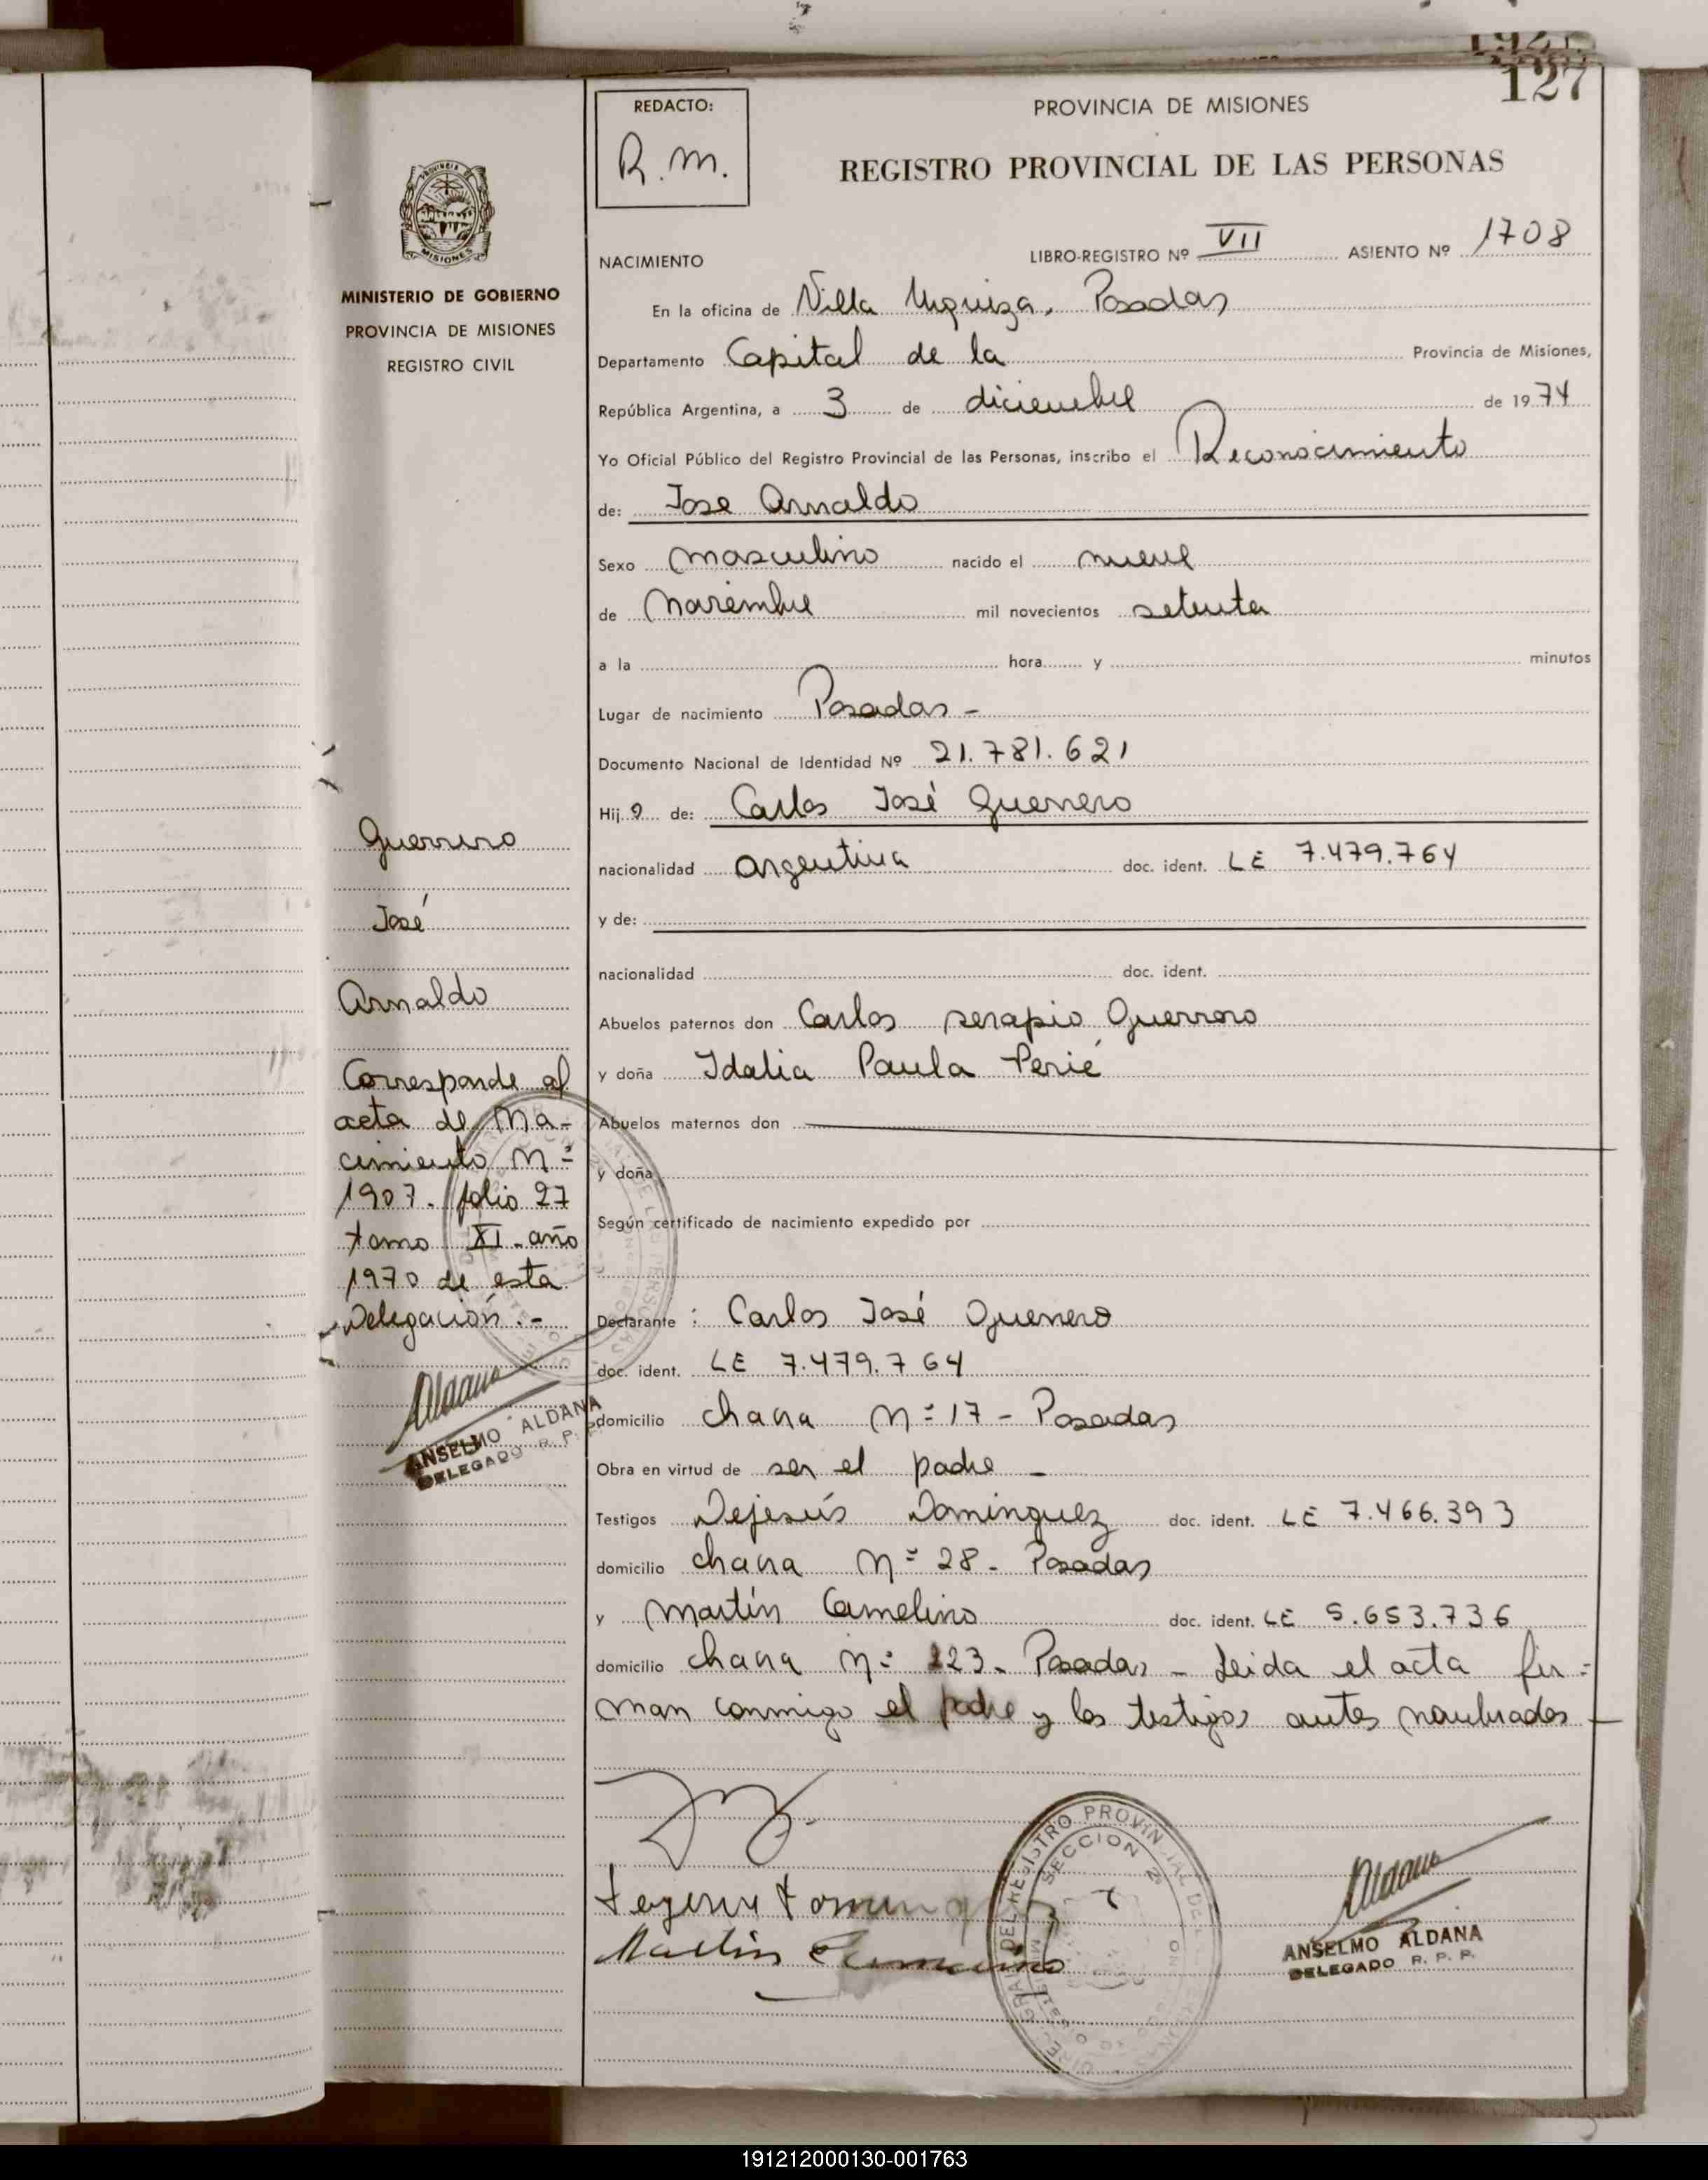 127
REDACTO:
R. M.
PROVINCIA DE MISIONES
REGISTRO PROVINCIAL DE LAS PERSONAS
PROVINCIA DE
MISIONES
MINISTERIO DE GOBIERNO
PROVINCIA DE MISIONES
REGISTRO CIVIL
Guerrero
José
Arnaldo
Corresponde al
acta de Na-
cimiento Nº
1907. folio 27
tomo XI - año
1970 de esta
Delegación.-
ANSELMO ALDANA
DELEGADO R. P. P.
NACIMIENTO
LIBRO-REGISTRO Nº VII ASIENTO Nº 1708
En la oficina de Villa Urquiza, Posadas
Departamento Capital de la Provincia de Misiones,
República Argentina, a 3 de diciembre de 1974
Yo Oficial Público del Registro Provincial de las Personas, inscribo el Reconocimiento
de: Jose Arnaldo
Sexo masculino nacido el nueve
de Noviembre mil novecientos setenta
a la hora y minutos
Lugar de nacimiento Posadas -
Documento Nacional de Identidad Nº 21.781.621
Hijo de: Carlos José Guerrero
nacionalidad argentina doc. ident. LE 7.479.764
y de:
nacionalidad doc. ident.
Abuelos paternos don Carlos serapio Guerrero
y doña Idalia Paula Perié
Abuelos maternos don
y doña
Según certificado de nacimiento expedido por
Declarante : Carlos José Guerrero
doc. ident. LE 7.479.764
domicilio chana Nº 17 - Posadas
Obra en virtud de ser el padre -
Testigos Dejesús Dominguez doc. ident. LE 7.466.393
domicilio chana Nº 28 - Posadas
y Martín Camelino doc. ident. LE 5.653.736
domicilio chana Nº 223 - Posadas - Leida el acta fir-
man conmigo el padre y los testigos antes nombrados -
Martin
SECCION 2ª
ANSELMO ALDANA
DELEGADO R. P. P.
191212000130-001763